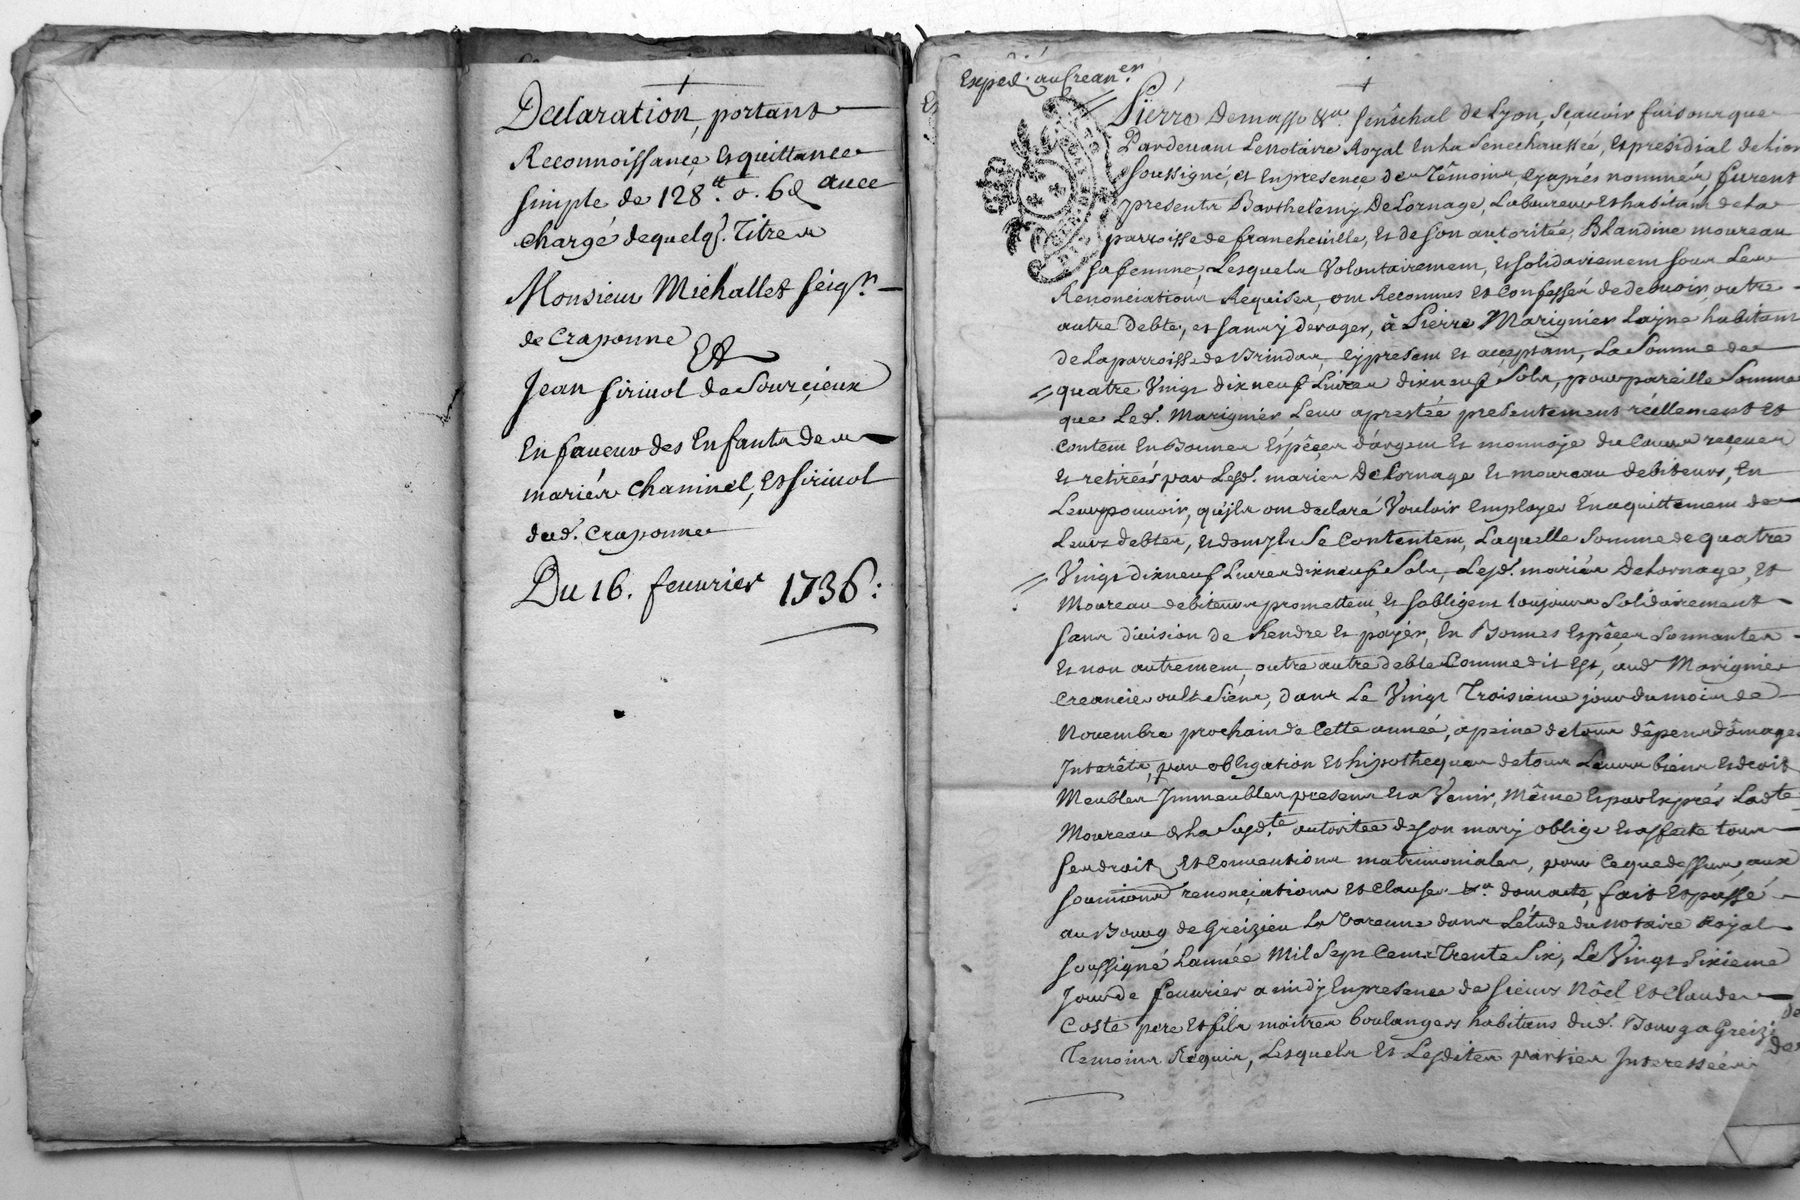 Declaration, portant
Reconnoissance, Et quittance
simple de 128.tt 0. 6d avec
charge de quelqs. Titres
Monsieur Michallet seigr.
de Craponne
Et
Jean sirivol de Sourcieux
En faveur des Enfants des
mariés chaminel, Et sirivol
dud. Craponne
Du 16. fevrier 1736:
Exped. au crean.er
Pierre Demasso &a. senéchal de Lyon, sçavoir faisons que
Pardevant Le notaire Royal En La Sénéchaussée, Et presidial de Lion
soussigné, et En presence des Témoins, cy aprés nommés, furent
presents Barthelemy DeLornage, Laboureur Et habitant de La
parroisse de francheville, Et de son autoritée, Blandine moureau
sa femme, Lesquels Volontairement, Et solidairement sous Les
Renonciations Requises, ont Reconnus Et Confessés de devoir, outre
autre debte, et sans y deroger, à Pierre Marignier Layne habitant
de La parroisse de Brindas, cy present Et acceptant, La Somme de
quatre Vingt dix neuf Livres dix neuf Sols, pour pareille Somme
que Led. Marignier Leur a prestée presentement réellement Et
Contant En Bonnes Espêces d'argent Et monnoye du Cours reçeues
Et retirées par Lesd. mariés DeLornage Et moureau debiteurs, En
Leur pouvoir, qu'ils ont declaré Vouloir Employer En aquittement de
Leurs debtes, Et dont ils Se Contentent, Laquelle Somme de quatre
Vingt dix neuf Livres dix neuf Sols, Lesd. mariés DeLornage, Et
Moureau debiteurs promettent, Et s'obligent toujours Solidairement
sans division de Rendre Et payer, En Bonnes Espêces Sonnantes
Et non autrement, outre autre debte Comme dit Est, aud. Marignier
Creancier ou Les Siens, dans Le Vingt Troisieme jour du mois de
Novembre prochain de Cette année, a peine de tous dêpens dômages
Interêts, par obligation Et hipotheque de tous Leurs biens Et droits
Meubles Immeubles presents Et a Venir, Même Et par Exprés Ladte
Moureau de La Susdte autoritée de son mary oblige Et affecte tous
ses droits Et Conventions matrimoniales, pour ce que dessus, aux
soumions renonciations Et clauses &a. dont acte, fait Et passé
au Bourg de Greizieu La Varenne dans L'étude du notaire Royal
soussigné L'année Mil Sept Cents Trente Six, Le Vingt Sixieme
Jour de fevrier a midy En presence de sieurs Nöel Et Claude
Coste pere Et fils maitres boulangers habitans dud. Bourg a Greizi
Temoins Requis, Lesquels Et Lesdites parties Interessées